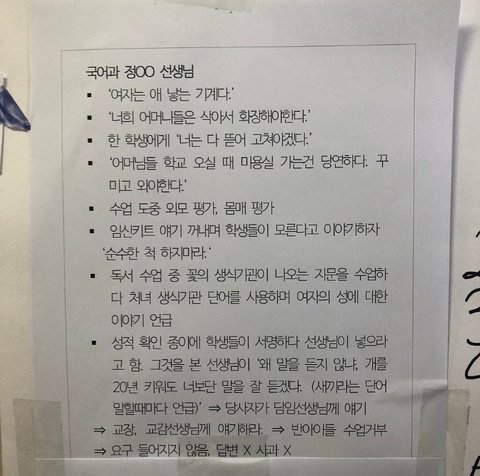 국어과 정OO 선생님
▪ '여자는 애 낳는 기계다.'
▪ '너희 어머니들은 식아서 화장해야한다.'
▪ 한 학생에게 '너는 다 뜯어 고쳐야겠다.'
▪ '어머님들 학교 오실 때 미용실 가는건 당연하다. 꾸
미고 와야한다.'
▪ 수업 도중 외모 평가, 몸매 평가
▪ 임신키트 얘기 꺼내며 학생들이 모른다고 이야기하자
'순수한 척 하지마라.'
▪ 독서 수업 중 꽃의 생식기관이 나오는 지문을 수업하
다 처녀 생식기관 단어를 사용하며 여자의 성에 대한
이야기 언급
▪ 성적 확인 종이에 학생들이 서명하다 선생님이 넣으라
고 함. 그것을 본 선생님이 '왜 말을 듣지 않냐, 개를
20년 키워도 너보단 말을 잘 듣겠다. (새끼라는 단어
말할때마다 언급)' ⇒ 당사자가 담임선생님께 얘기
⇒ 교장, 교감선생님께 얘기해라. ⇒ 반아이들 수업거부
⇒ 요구 들어지지 않음, 답변 X 사과 X